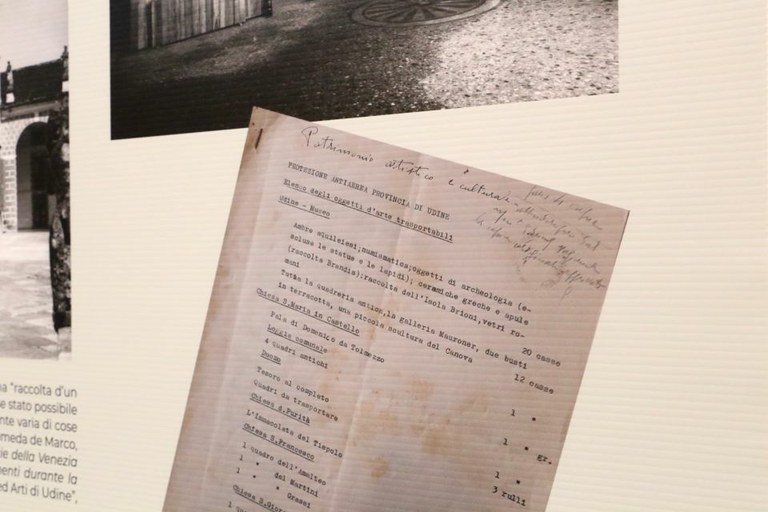 Patrimonio artistico e culturale
PROTEZIONE ANTIAEREA PROVINCIA DI UDINE
Elenco degli oggetti d'arte trasportabili
Udine - Museo
Ambre aquileiesi,numismatica;oggetti di archeologia (e-
scluse le statue e le lapidi); ceramiche greche e apule
(raccolta Brandis);raccolta dell'Isola Brioni,vetri ro-
mani
20 casse
Tutta la quadreria antica,la galleria Mauroner, due busti
in terracotta, una piccola scultura del Canova
12 casse
Chiesa S.Maria in Castello
Pala di Domenico da Tolmezzo
1 "
Loggia comunale
4 quadri antichi
Duomo
Tesoro al completo
1 " gr.
Quadri da trasportare
Chiesa d.Purità
1 "
L'Immacolata del Tiepolo
3 rulli
Chiesa S.Francesco
1 quadro dell'Amalteo
1 " del Martini
1 " " Grassi
Chiesa S.Gior
na "raccolta d'un
e stato possibile
nte varia di cose
omeda de Marco,
rie della Venezia
menti durante la
ed Arti di Udine",